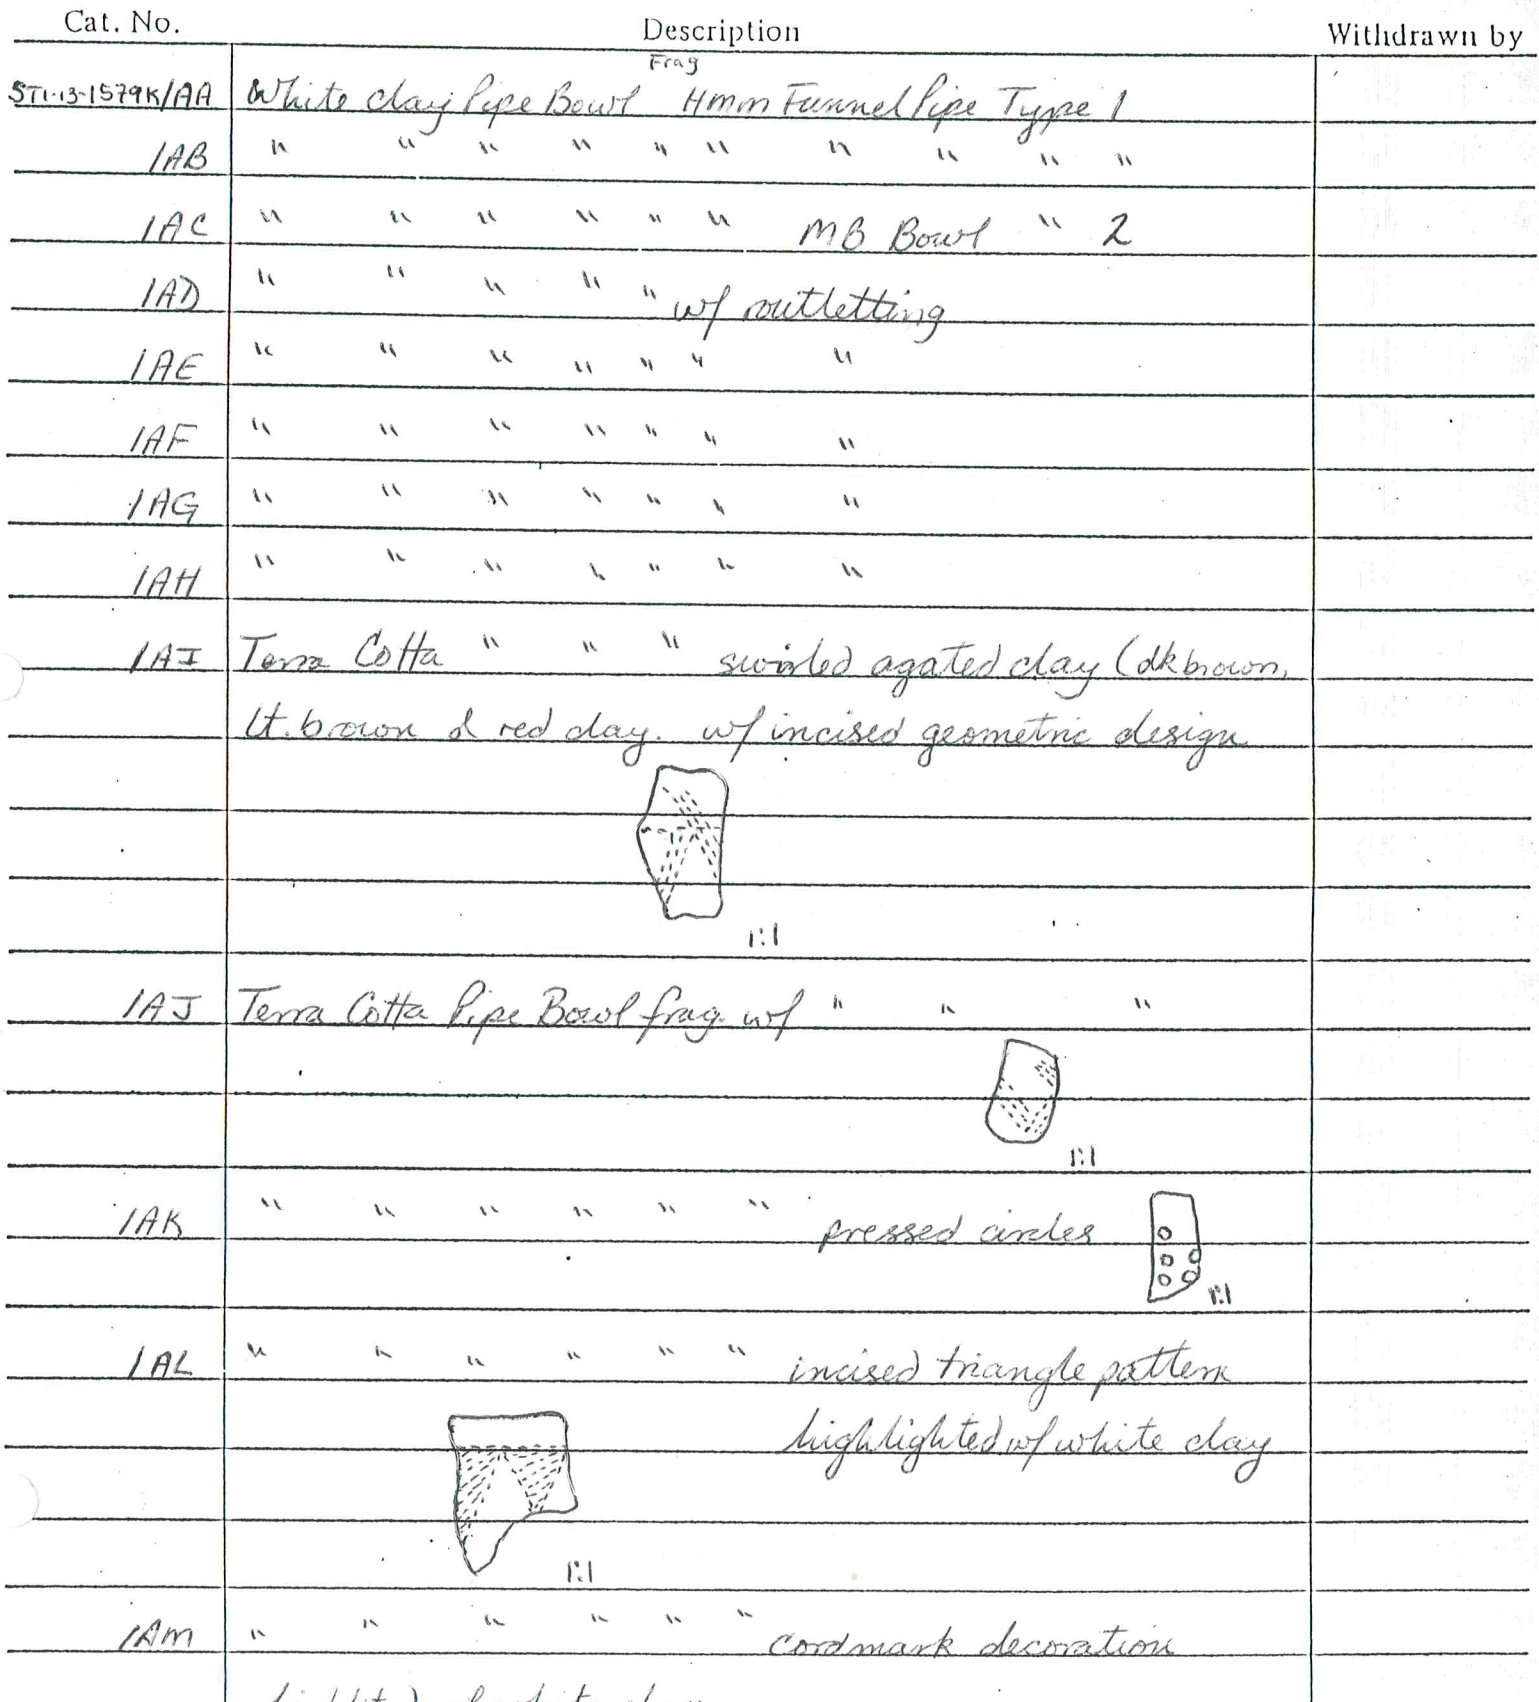 Cat. No. Description Withdrawn by
Frag
ST1-13-1579K/AA White clay Pipe Bowl Hmm Funnel Pipe Type 1
/AB " " " " " " " " " "
/AC " " " " " " MB Bowl " 2
/AD " " " " " w/ routletting
/AE " " " " " " "
/AF " " " " " " "
/AG " " " " " " "
/AH " " " " " " "
/AI Terra Cotta " " " swirled agated clay (dk brown,
lt. brown & red clay. w/ incised geometric design
1:1
/AJ Terra Cotta Pipe Bowl frag. w/ " " "
1:1
/AK " " " " " " pressed circles
1:1
/AL " " " " " " incised triangle pattern
highlighted w/ white clay
1:1
/AM " " " " " " cordmark decoration